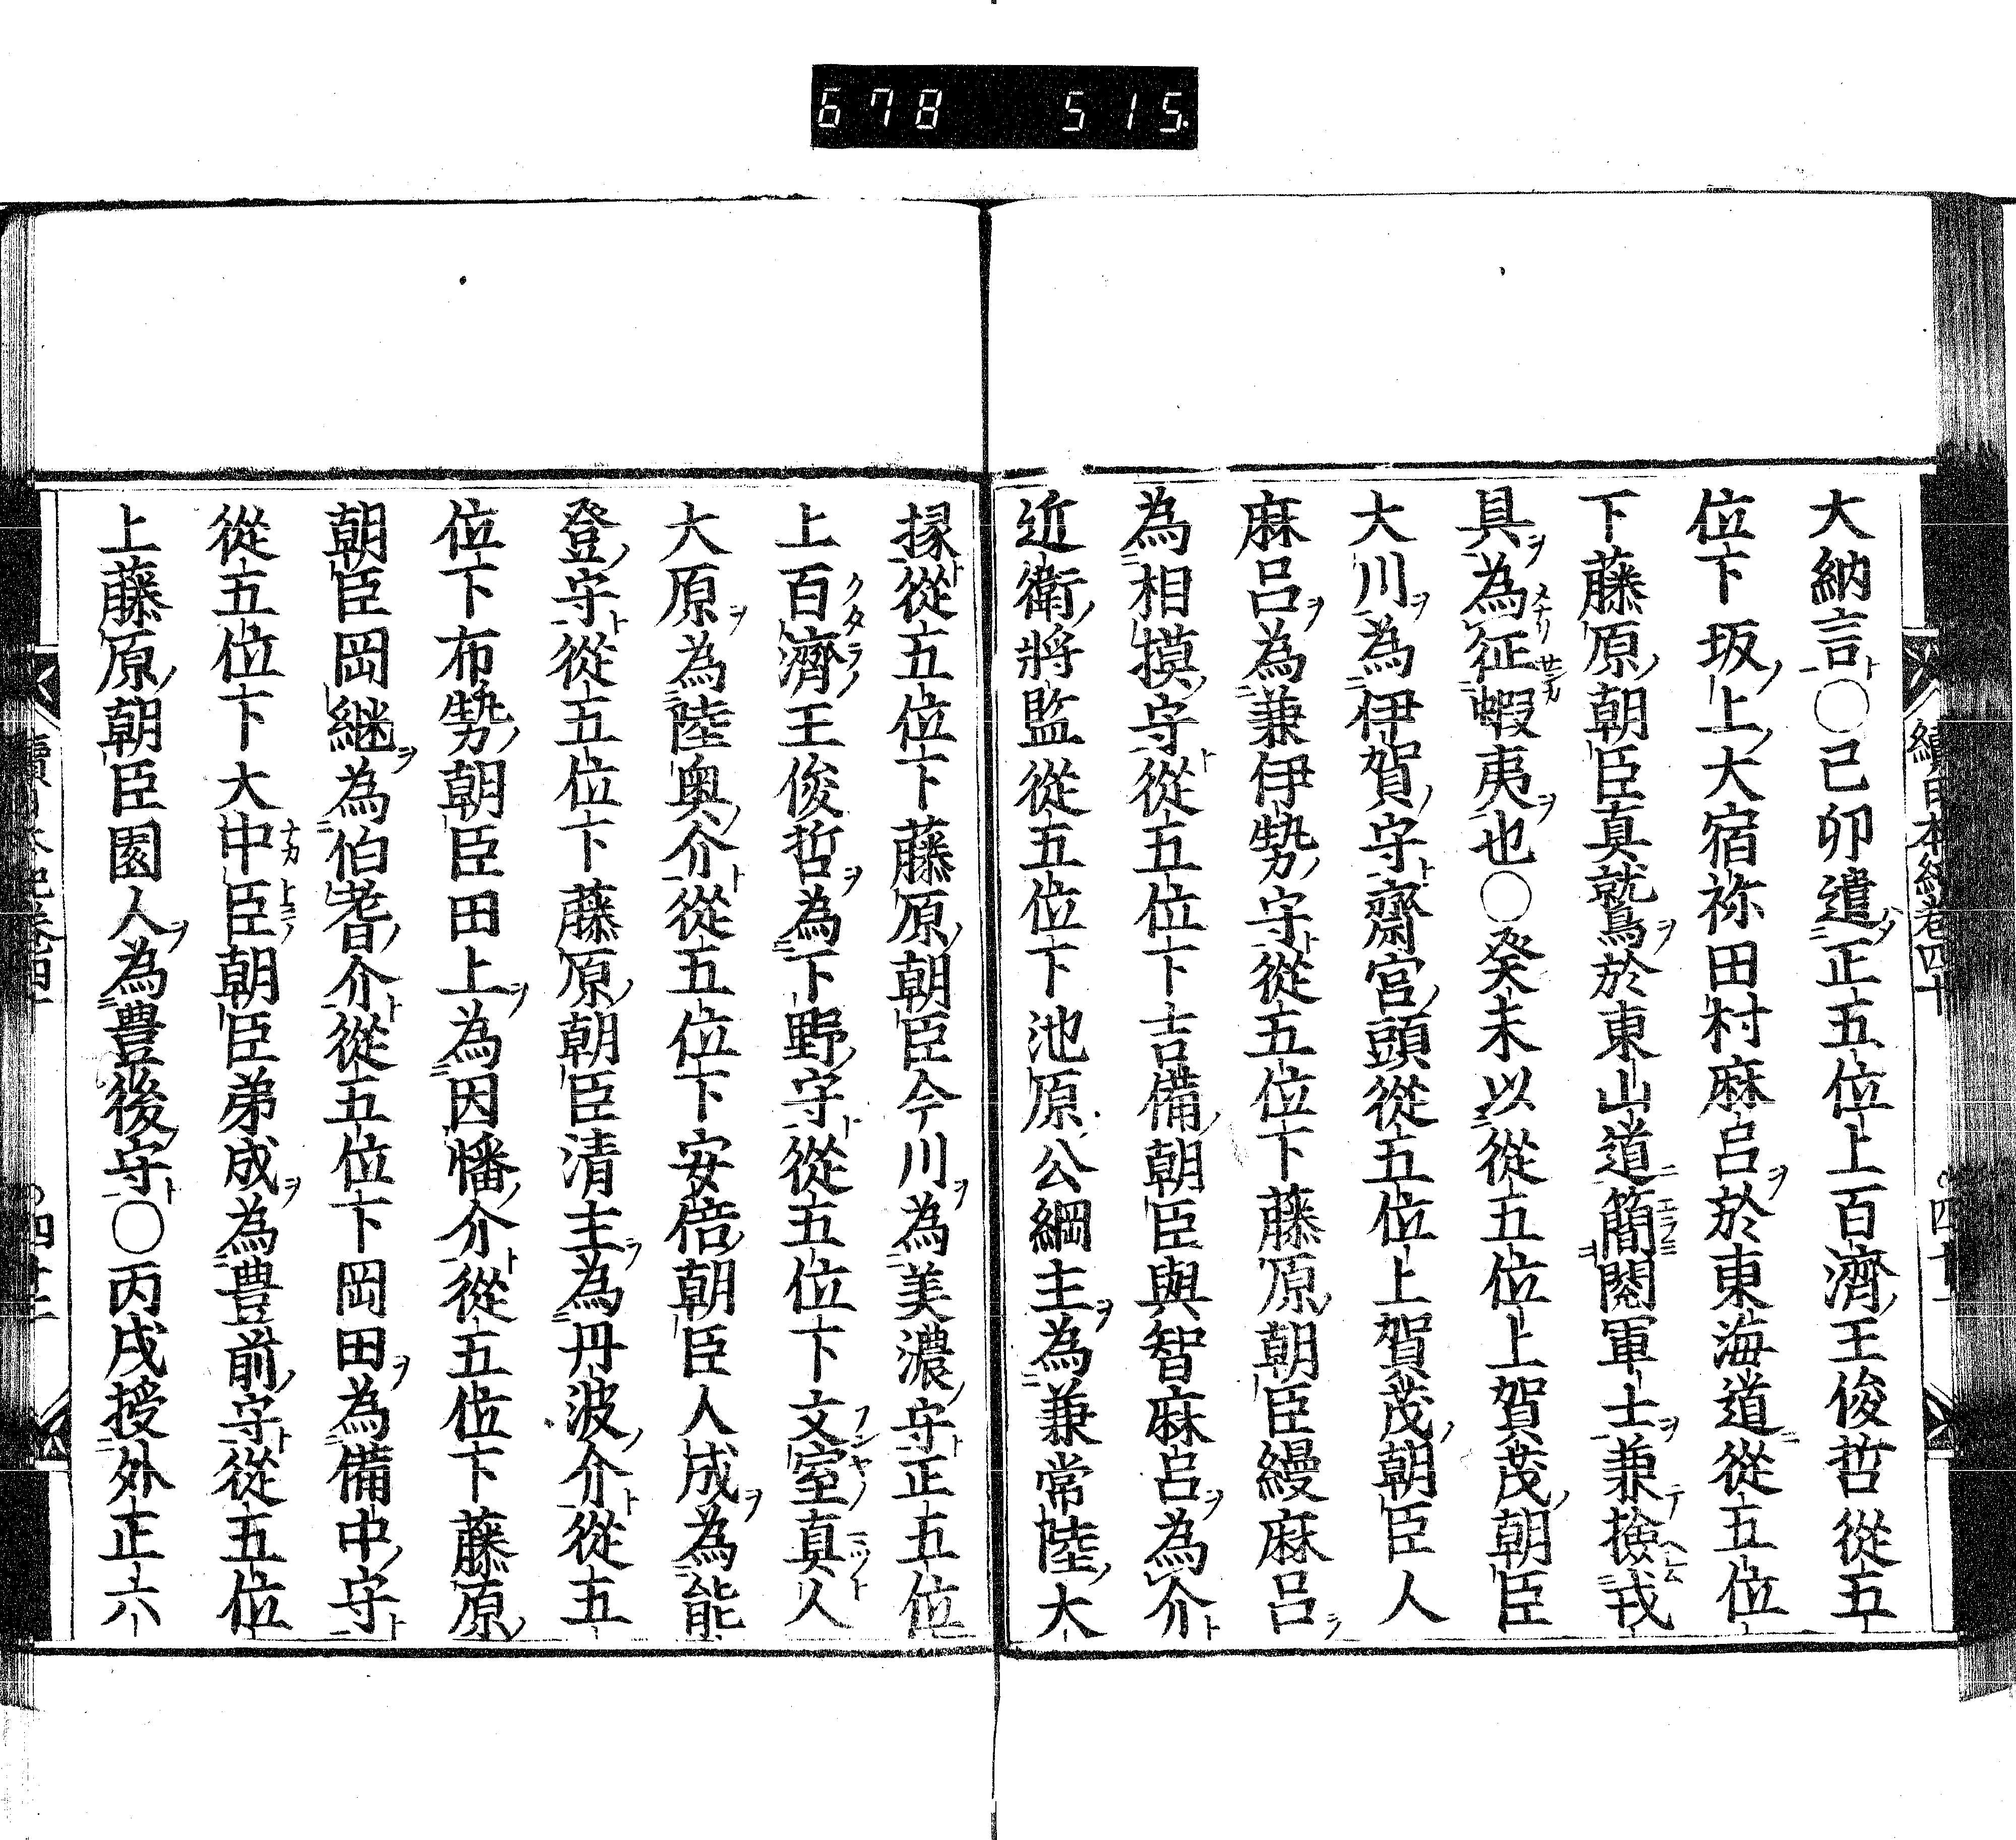 678 515
大納言○己卯遣正五位上百濟王俊哲從五
位下坂上大宿祢田村麻呂於東海道從五位
下藤原朝臣真鷲於東山道簡閱軍士兼撿戎
具為征蝦夷也○癸未以從五位上賀茂朝臣
大川為伊賀守齋宮頭從五位上賀茂朝臣人
麻呂為兼伊勢守從五位下藤原朝臣縵麻呂
為相摸守從五位下吉備朝臣與智麻呂為介
近衛將監從五位下池原公綱主為兼常陸大
掾從五位下藤原朝臣今川為美濃守正五位
上百濟王俊哲為下野守從五位下文室真人
大原為陸奥介從五位下安倍朝臣人成為能
登守從五位下藤原朝臣清主為丹波介從五
位下布勢朝臣田上為因幡介從五位下藤原
朝臣岡継為伯耆介從五位下岡田為備中守
從五位下大中臣朝臣弟成為豊前守從五位
上藤原朝臣園人為豊後守○丙戌授外正六